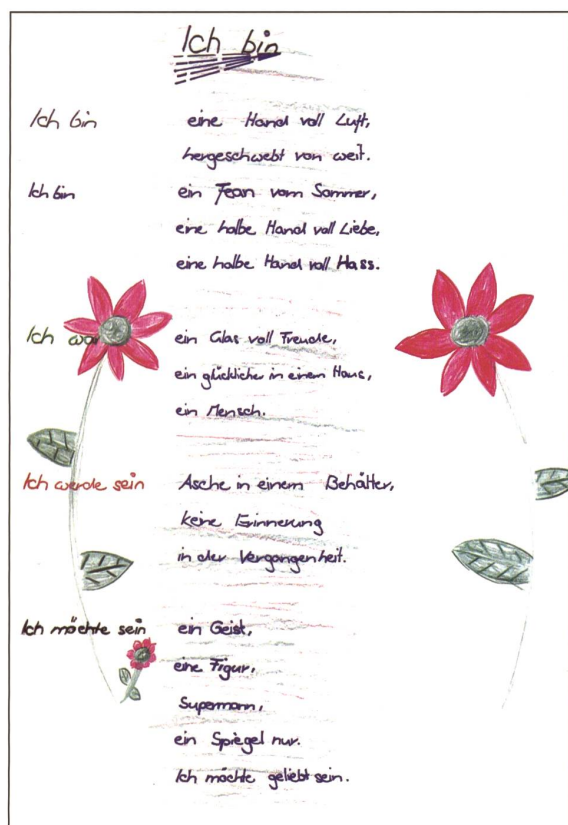 Ich bin
Ich bin eine Hand voll Luft,
hergeschwebt von weit.
Ich bin ein Fean vom Sommer,
eine halbe Hand voll Liebe,
eine halbe Hand voll Hass.
Ich war ein Glas voll Freude,
ein glücklicher in einem Haus,
ein Mensch.
Ich werde sein Asche in einem Behälter,
keine Erinnerung
in der Vergangenheit.
Ich möchte sein ein Geist,
eine Figur,
Supermann,
ein Spiegel nur.
Ich möchte geliebt sein.